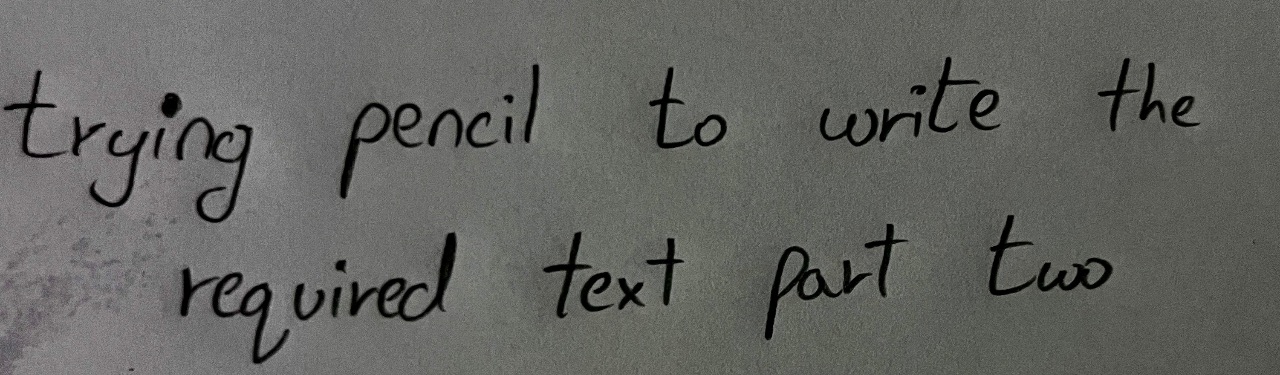 trying pencil to write the
required text part two